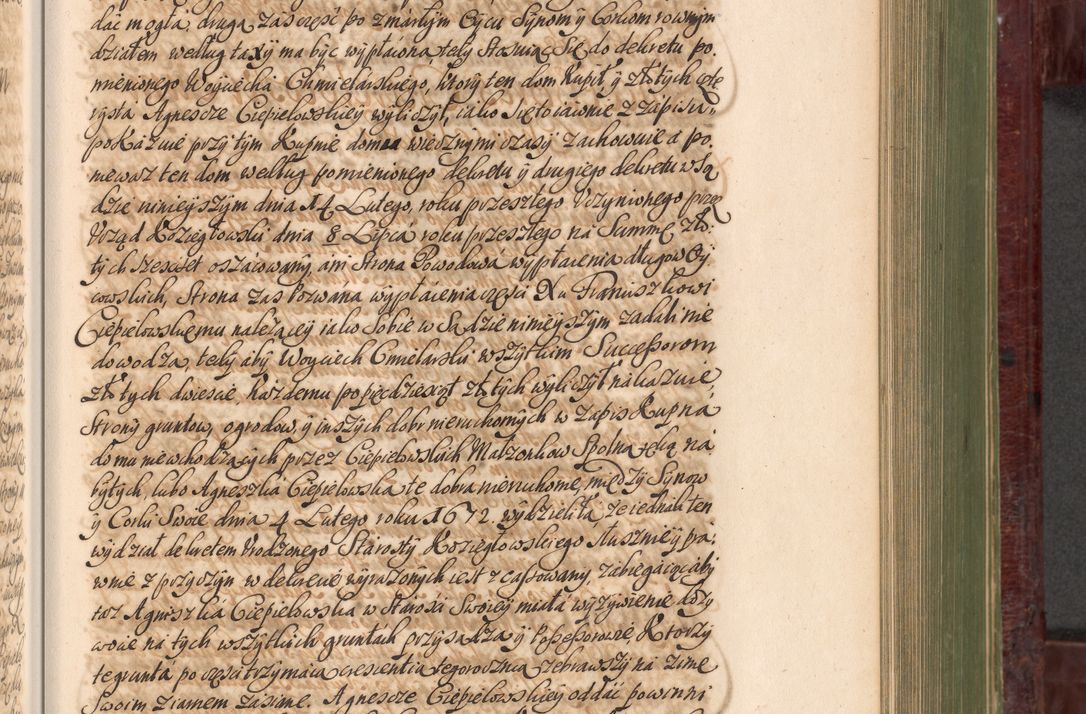 dać mogła, drugą zaś część po zmarłym Oycu Synom y Corkom rownym
działem według taxy ma być wypłacona, tedy stosuiąc się do dekretu po,
mienionego Woyciecha Chmielarskiego, ktory ten dom kupił y złotych czte
rysta Agneszce Ciepielowskiey wyliczył, iako się to iawnie z zapisu
pokazuie przy tym kupnie domu wiecznymi czasy zachowuie a po,
niewasz ten dom według pomienionego dekretu y drugiego dekretu w Są
dzie ninieyszym dnia 14 Lutego, roku przeszłego uczynionego przez
Urząd Koziegłowski dnia 8 Lipca roku przeszłego na Summę zło:
tych szescset oszacowany, ani Strona Powodowa wypłacenia długow Oy,
cowskich, Strona zaś Pozwana wypłacenia częsci X. Franuszkowi
Ciepielowskiemu należącey iako sobie w Sądzie ninieyszym zadali nie
dowodzą, tedy aby Woyciech Chmielarski wszytkim Successorom
złotych dwiescie każdemu po pięcdziesiąt złotych wyliczył nakazuie,
Strony gruntow, ogrodow, y inszych dobr nieruchomych w zapis kupna
domu niewchodzących przez Ciepielowskich Małzonkow spolną ręką na
bytych, lubo Agneszka Ciepielowska te dobra nieruchome między Synow
y Corki Swoie dnia 4 Lutego roku 1672. wydzieliła, że iednak ten
wydział dekretem Urodzonego Starosty Koziegłowskiego słusznie y pra,
wnie z przyczyn w dekrecie wyrażonych iest zcassowany, zabiegaiąc aby
taż Agnieszka Ciepielowska w starości swoiey miała wyzywienie doży
wocie na tych wszytkich gruntach przysądza y Possessorowie, ktorzy
te grunta po częsci trzymaią crescentia tegoroczną zebrawszy na zimę
swoim ziarnem zasiane. Agneszce Ciepielowskiey oddać powinni